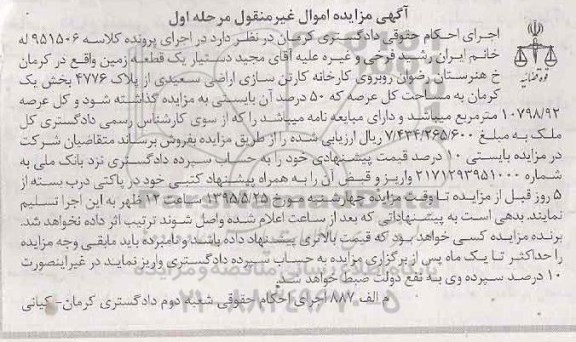 آگهی مزایده اموال غیرمنقول مرحله اول
اجرای احکام حقوقی دادگستری کرمان در نظر دارد در اجرای پرونده کلاسه ۹۵۱۵۰۶ له
خانم ایران رشید فرخی و غیره علیه آقای مجید دستیار یک قطعه زمین واقع در کرمان
خ هنرستان رضوان روبروی کارخانه کارتن سازی اراضی سعیدی از پلاک ۴۷۷۶ بخش یک
کرمان به مساحت کل عرصه که ۵۰ درصد آن بایستی به مزایده گذاشته شود و کل عرصه
۱۰۷۹۸/۹۲ مترمربع میباشد و دارای مبایعه نامه میباشد را که از سوی کارشناس رسمی دادگستری کل
ملک به مبلغ ۷/۴۳۴/۲۶۵/۶۰۰ ریال ارزیابی شده را از طریق مزایده بفروش برساند متقاضیان شرکت
در مزایده بایستی ۱۰ درصد قیمت پیشنهادی خود را به حساب سپرده دادگستری نزد بانک ملی به
شماره ۲۱۷۱۲۹۳۹۵۱۰۰۰ واریز و قبض آن را به همراه پیشنهاد کتبی خود در پاکتی درب بسته از
۵ روز قبل از مزایده تا وقت مزایده چهارشنبه مورخ ۱۳۹۵/۵/۲۵ ساعت ۱۲ ظهر به این اجرا تسلیم
نمایند. بدهی است به پیشنهاداتی که بعد از ساعت اعلام شده واصل شوند ترتیب اثر داده نخواهد شد.
برنده مزایده کسی خواهد بود که قیمت بالاتری پیشنهاد داده باشد و نامبرده باید مابقی وجه مزایده
را حداکثر تا یک ماه پس از برگزاری مزایده به حساب سپرده دادگستری واریز نماید در غیراینصورت
۱۰ درصد سپرده وی به نفع دولت ضبط خواهد شد.
م الف ۸۸۷ اجرای احکام حقوقی شعبه دوم دادگستری کرمان - کیانی
قوه قضائیه
پایگاه اطلاع رسانی مناقصه و مزایده
۰۲۱-۸۸۳۴۹۶۷۰-۵